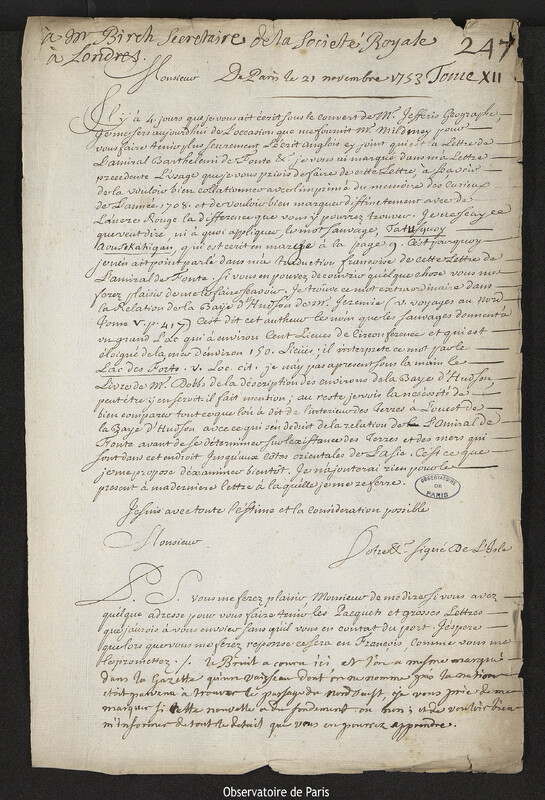 à Mr Birch Secretaire de la Societé Royale
247
à Londres.
Tome XII
Monsieur De Paris le 21 novembre 1753
Il y à 4. jours que je vous ait écrit sous le couvert de Mr. Jefferis Geographe,
Je me sers aujourdhui de l'occasion que me fournit Mr. Mildmay pour
vous faire tenir plus seurement L'écrit anglois cy joint qui est la Lettre de
L'amiral Barthelemi de Fonte &c. je vous ai marqué dans ma Lettre
precedente L'usage que je vous priois de faire de cette Lettre, à sçavoir
de la vouloir bien collationner avec l'imprimé du memoire des Curieux
de L'année 1708. et de vouloir bien marquer distinctement avec de
L'ancre Rouge la difference que vous y pourrez trouver. Je ne sçay ce
que veut dire ni à quoi appliquer le mot sauvage, Tatusquoy
aousKahigan, qui est écrit en marge à la page 9. C'est pourquoy
jen'en ait point parlé dans ma traduction francoise de cette Lettre de
L'amiral de Fonte. Si vous en pouvez decouvrir quelque chose vous me
ferez plaisir de me le faire sçavoir. Je trouve ce mot extraordinaire dans
la Relation de la Baye d'Hudson de Mr. Jeremie (v. voyages au Nord
Tome V. p. 417) C'est dit cet autheur le nom que les sauvages donnent à
un grand Lac qui a environ Cent Lieues de Circonference et qui est
éloigné de la mer d'environ 150. Lieües; il interprete ce mot par le
Lac des Forts. v. Loc. cit. je n'ay pas apresent sous la main le
Livre de Mr. Dobbs de la description des environs de la Baye d'Hudson,
peut être y en seroit il fait mention; au reste je vois la necessité de
bien comparer tout ce que l'on à dit de l'interieur des Terres a L'ouest de
la Baye d'Hudson avec ce qui s'en déduit de la relation de L'amiral de
Fonte avant de se déterminer sur l'existance des Terres et des mers qui
sont dans cet endroit Jusqu'aux côtes orientales de L'asie. C'est ce que
je me propose d'examiner bientôt. Je n'ajouterai rien pour le
present à ma derniere lettre à laquelle je me referre.
OBSERVATOIRE DE PARIS
Je suis avec toute l'estime et la consideration possible
Monsieur
Votre &c. signé De L'Isle
P. S. vous me ferez plaisir Monsieur de me dire si vous avez
quelque adresse pour vous faire tenir les Pacquets et grosses Lettres
que j'aurois à vous envoier sans qu'il vous en coutat du port. J'espere
que lors que vous me ferez reponse ce sera en Francois comme vous me
le promettez ./. le Bruit a couru ici et l'on a même marqué
dans la Gazette qu'un vaisseau dont on ne nomme pas la nation
étoit parvenu à trouver le passage du nord ouest, je vous prie de me
marquer si cette nouvelle a du fondement ou non; et de vouloir bien
m'informer de tout le detail que vous en pourrez apprendre.
Observatoire de Paris